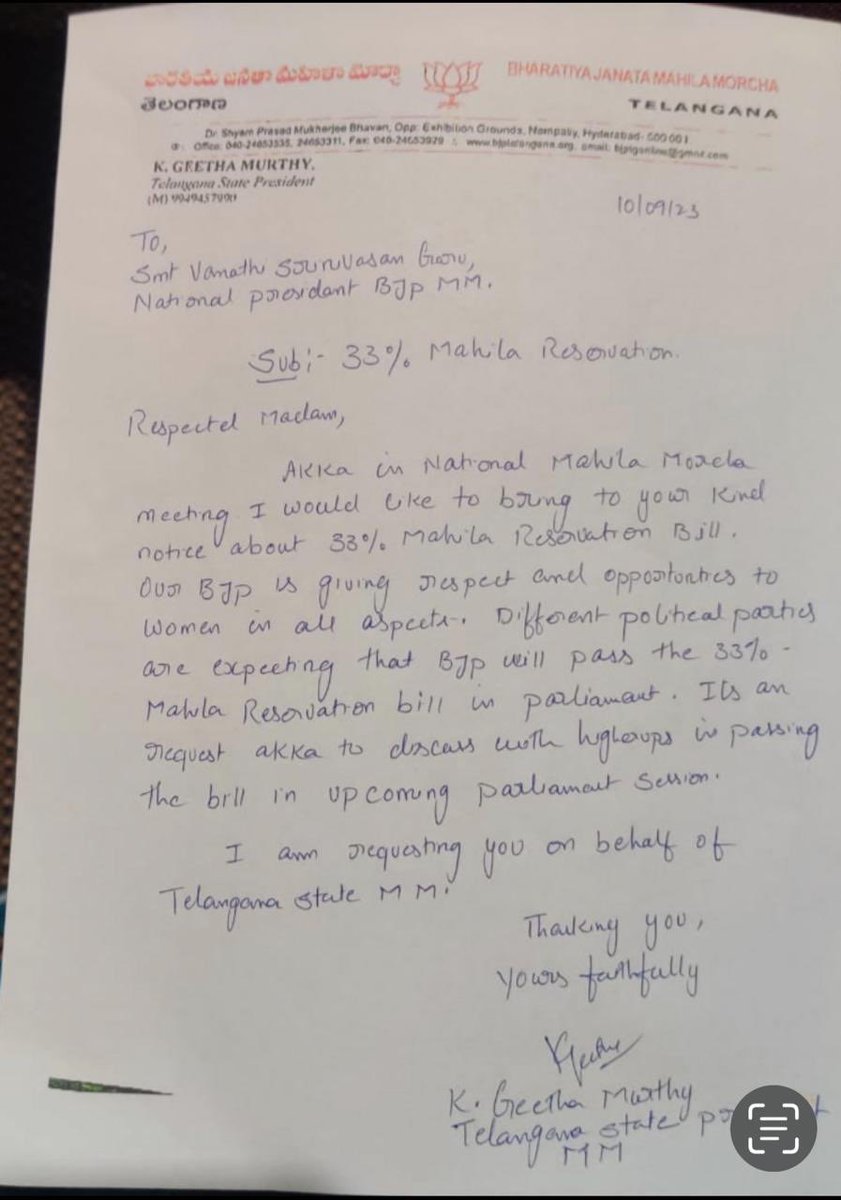 భారతీయ జనతా మహిళా మోర్చా
తెలంగాణ
BHARATIYA JANATA MAHILA MORCHA
TELANGANA
Dr. Shyam Prasad Mukherjee Bhavan, Opp: Exhibition Grounds, Nampally, Hyderabad- 500 001
Office: 040-24653535, 24653311, Fax: 040-24653929 : www.bjptelangana.org, email:
K. GEETHA MURTHY,
Telangana State President
(M) 9949457990
10/09/23
To,
Smt Vanathi Sriinivasan Guru,
National president BJP MM.
Sub:- 33% Mahila Reservation.
Respected Madam,
Akka in National Mahila Morcla
meeting I would like to bring to your kind
notice about 33% Mahila Reservation Bill.
Our BJP is giving respect and opportunties to
women in all aspects. Different political parties
are expecting that BJP will pass the 33% -
Mahila Reservation bill in parliament. Its an
request akka to discuss with higherups in passing
the bill in upcoming parliament session.
I am requesting you on behalf of
Telangana state MM.
Thanking you,
Yours faithfully
K. Geetha Murthy
Telangana state
MM